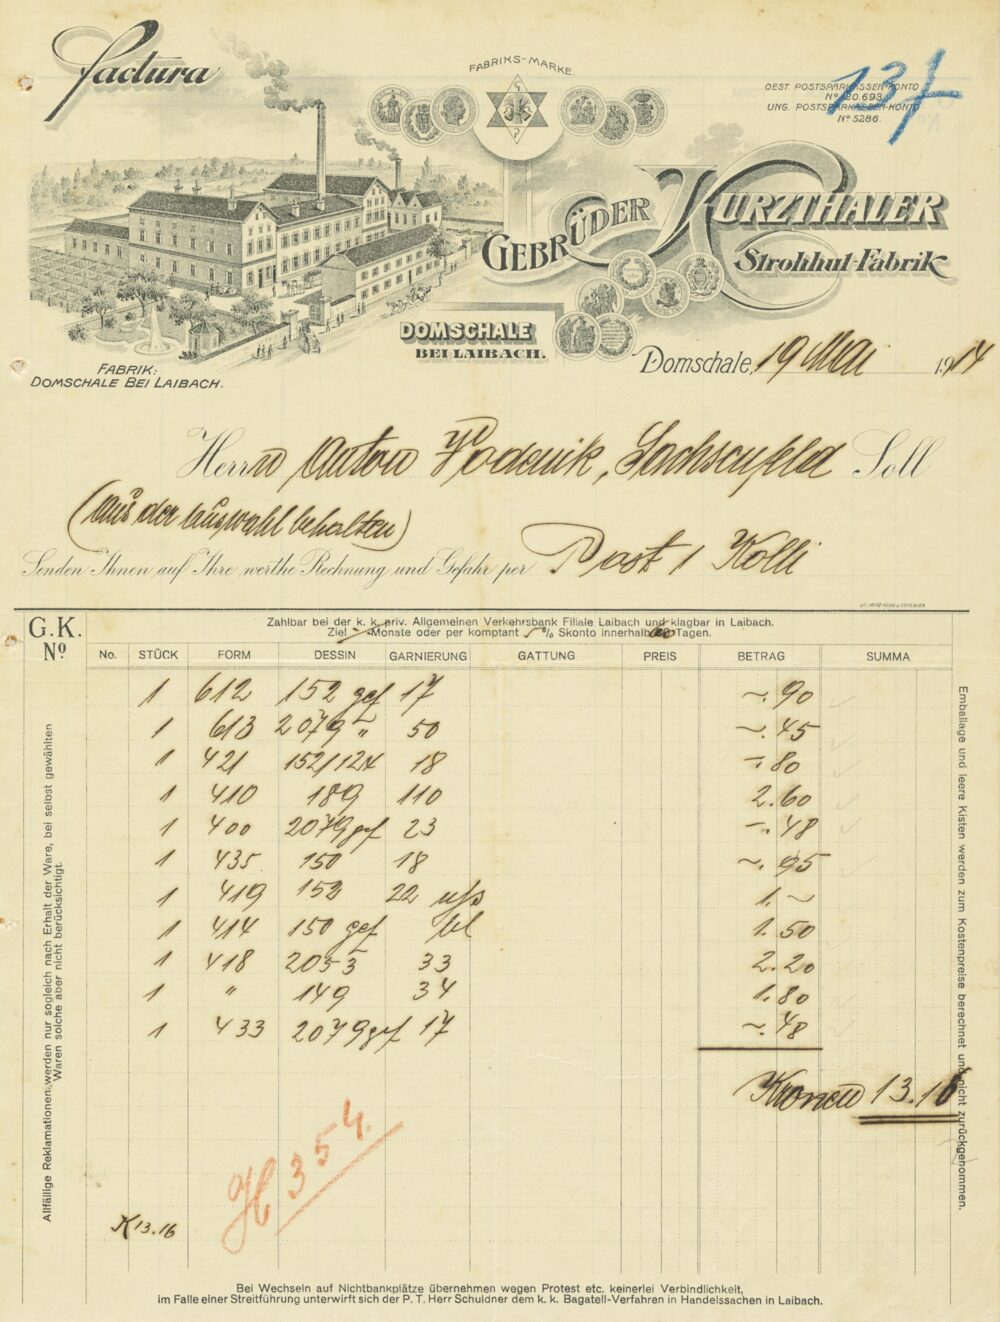 Factura
FABRIKS-MARKE.
OEST POSTSPARKASSEN-KONTO
No 20.693
UNG. POSTSPARKASSEN-KONTO
No 5286.
137
GEBRÜDER KURZTHALER
Strohhut-Fabrik
DOMSCHALE
BEI LAIBACH.
FABRIK:
DOMSCHALE BEI LAIBACH.
Domschale, 19 Mai 1914
Herrn Anton Vodenik, Sachsenfeld Soll
(aus der Auswahl behalten)
Senden Ihnen auf Ihre werthe Rechnung und Gefahr per Post 1 Kolli
G.K.
No
Zahlbar bei der k. k. priv. Allgemeinen Verkehrsbank Filiale Laibach und klagbar in Laibach.
Ziel Monate oder per komptant 5% Skonto innerhalb Tagen.
No. STÜCK FORM DESSIN GARNIERUNG GATTUNG PREIS BETRAG SUMMA
1 612 152 gef 17 ~.90
1 613 2079 " 50 ~.45
1 421 152/124 18 ~.80
1 410 189 110 2.60
1 400 2079 gef 23 ~.48
1 435 150 18 ~.95
1 419 152 22 1.~
1 414 150 gef bl 1.50
1 418 2053 33 2.20
1 " 149 34 1.80
1 433 2079 gef 17 ~.48
Kronen 13.16
354.
K 13.16
Allfällige Reklamationen werden nur sogleich nach Erhalt der Ware, bei selbst gewählten
Waren solche aber nicht berücksichtigt.
Emballage und leere Kisten werden zum Kostenpreise berechnet und nicht zurückgenommen.
Bei Wechseln auf Nichtbankplätze übernehmen wegen Protest etc. keinerlei Verbindlichkeit,
im Falle einer Streitführung unterwirft sich der P. T. Herr Schuldner dem k. k. Bagatell-Verfahren in Handelssachen in Laibach.